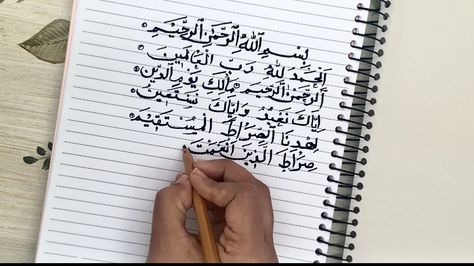 بِسْمِ ٱللَّهِ ٱلرَّحْمَٰنِ ٱلرَّحِيمِ
اَلْحَمْدُ لِلَّهِ رَبِّ الْعَالَمِينَ
اَلرَّحْمَٰنِ الرَّحِيمِ مَالِكِ يَوْمِ الدِّينِ
إِيَّاكَ نَعْبُدُ وَإِيَّاكَ نَسْتَعِينُ
اِهْدِنَا الصِّرَاطَ الْمُسْتَقِيمَ
صِرَاطَ الَّذِينَ أَنْعَمْتَ